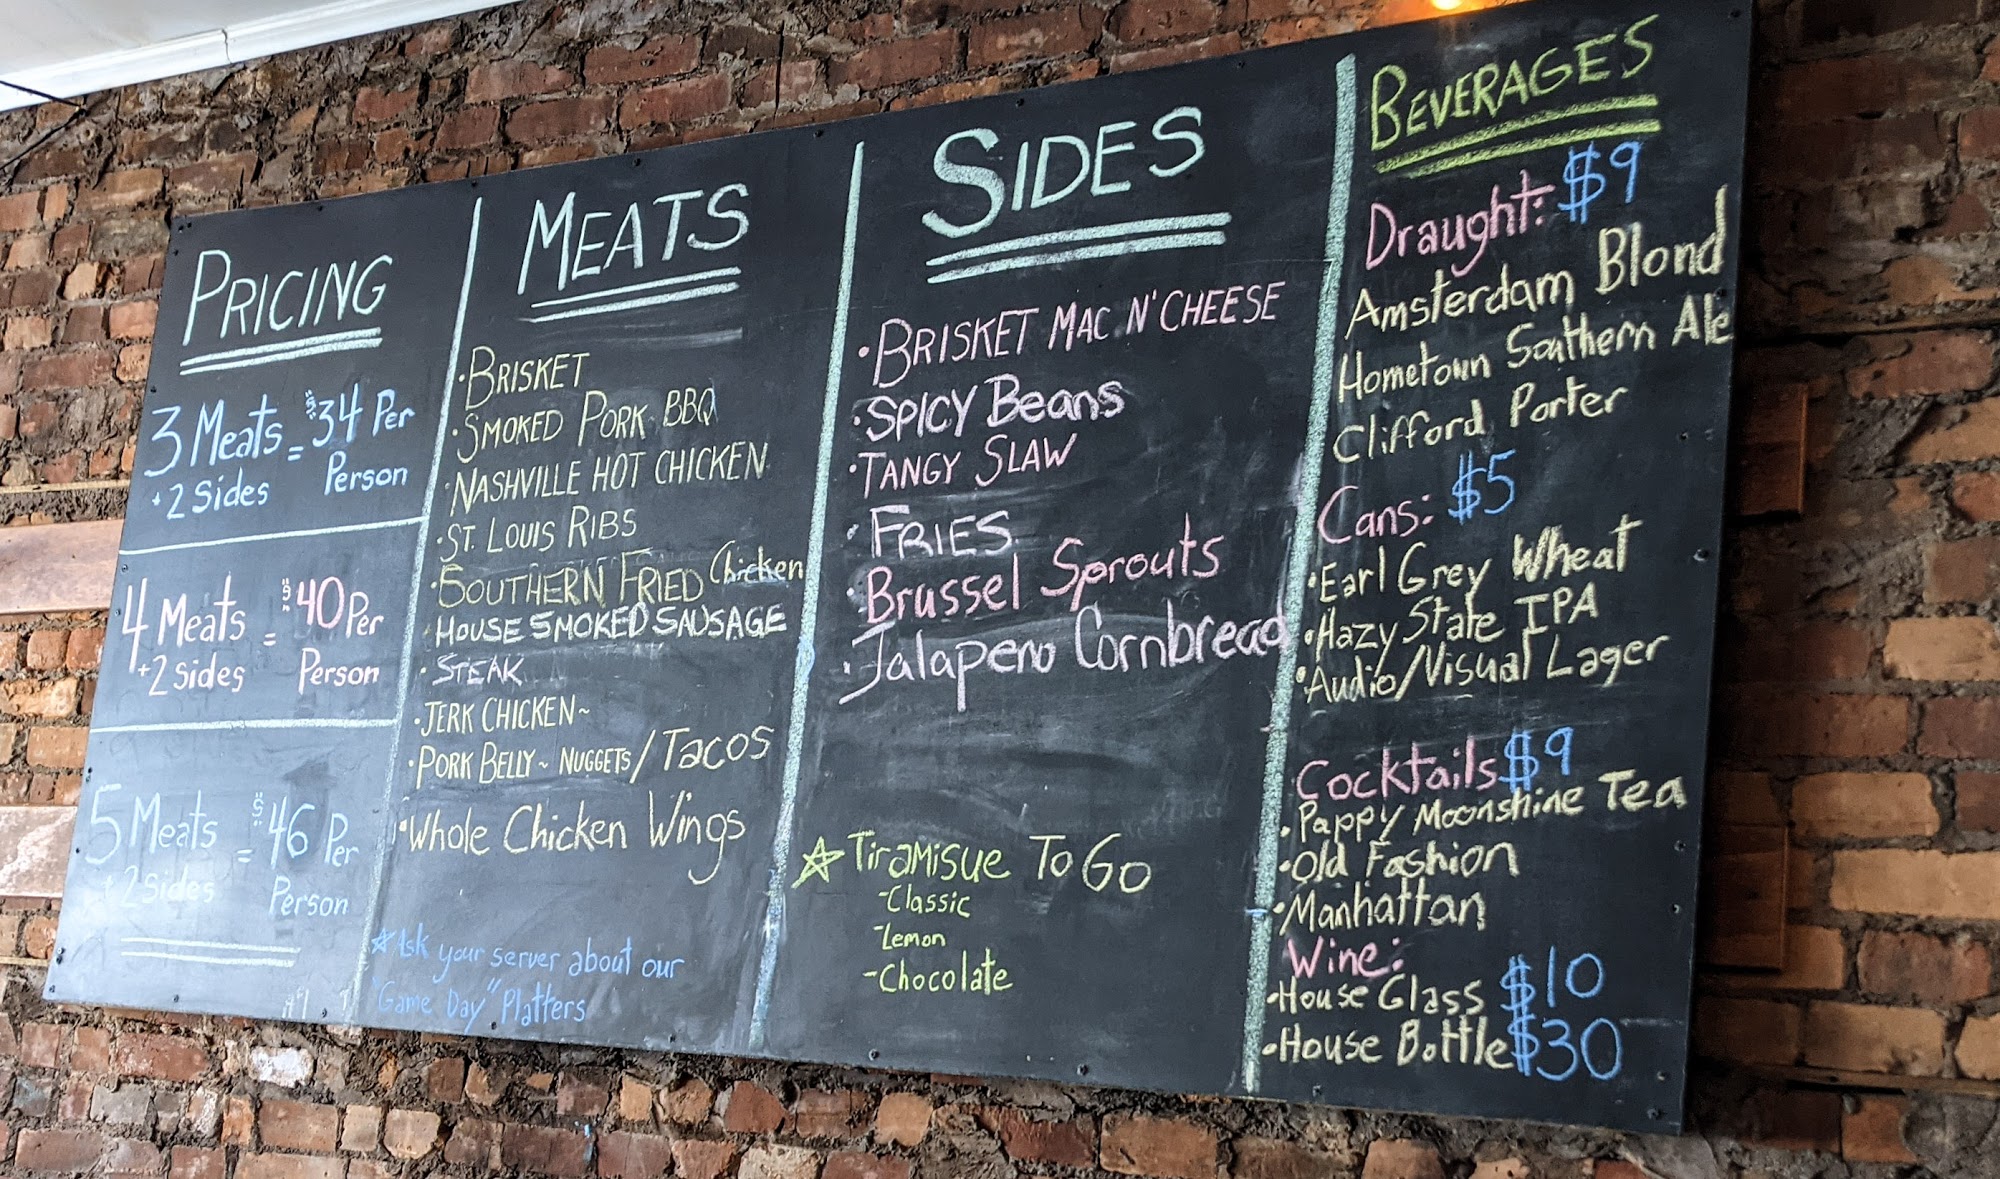 PRICING
3 Meats = $34 Per
+2 Sides Person
4 Meats = $40 Per
+2 sides Person
5 Meats = $46 Per
+2 sides Person
MEATS
• BRISKET
• SMOKED PORK BBQ
• NASHVILLE HOT CHICKEN
• ST. LOUIS RIBS
• SOUTHERN FRIED Chicken
• HOUSE SMOKED SAUSAGE
• STEAK
• JERK CHICKEN~
• PORK BELLY~ NUGGETS/TACOS
• WHOLE Chicken Wings
☆Ask your server about our
"Game Day" Platters
SIDES
• BRISKET MAC N' CHEESE
• SPICY Beans
• TANGY SLAW
• FRIES
• Brussel Sprouts
• Jalapeno Cornbread
☆ TiraMisue To Go
-Classic
-Lemon
-Chocolate
BEVERAGES
Draught: $9
Amsterdam Blond
Hometown Southern Ale
Clifford Porter
Cans: $5
• Earl Grey Wheat
• Hazy State IPA
• Audio/Visual Lager
Cocktails $9
• Pappy Moonshine Tea
• Old Fashion
• Manhattan
Wine:
• House Glass $10
• House Bottle $30